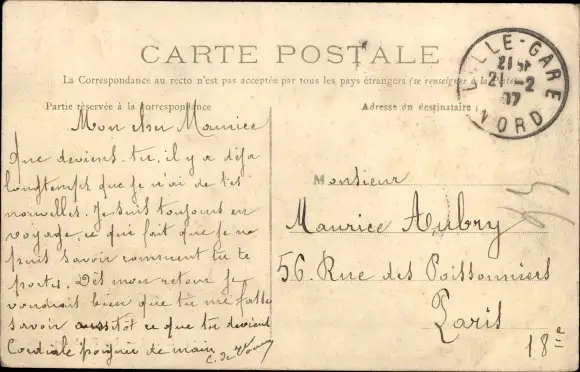 CARTE POSTALE
La Correspondance au recto n'est pas acceptée par tous les pays étrangers (se renseigner à la Poste)
Partie réservée à la correspondance
Adresse du destinataire
LILLE-GARE
21
21-2
17
NORD
Mon cher Maurice
Que deviens-tu, il y a déja
longtemps que je n'ai de tes
nouvelles. Je suis toujours en
voyage, ce qui fait que je ne
puis savoir comment tu te
portes. Dès mon retour je
voudrais bien que tu me fasse
savoir aussitot ce que tu deviens
Cordiale poignée de main
C. de
Monsieur
Maurice Aubry
56. Rue des Poissonniers
Paris
18e